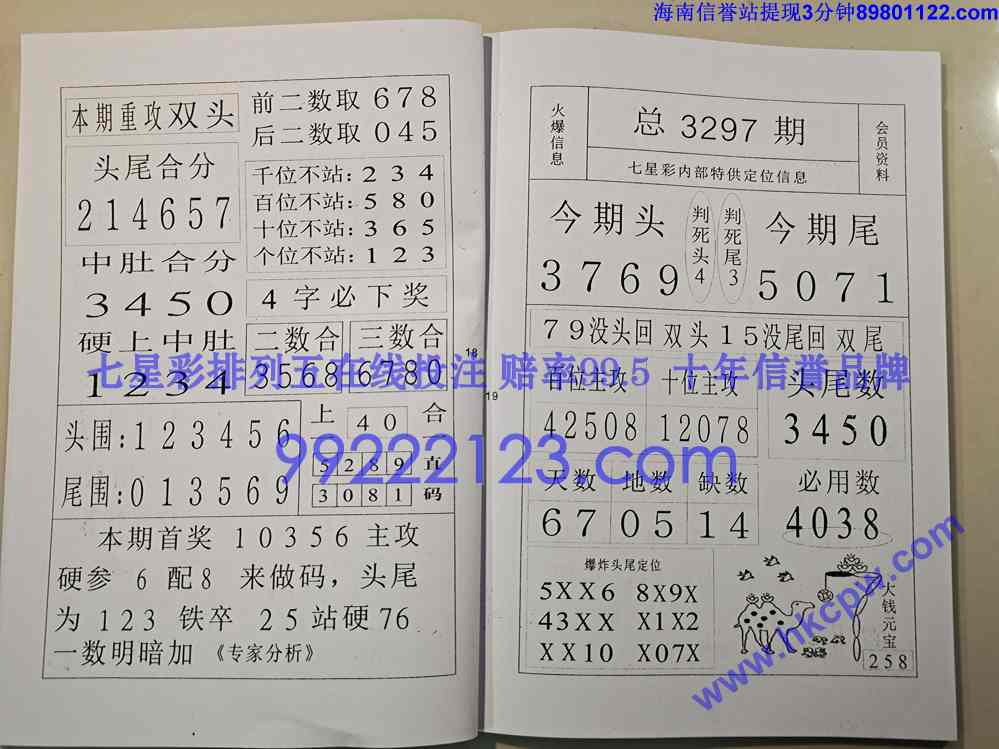 海南信誉站提现3分钟89801122.com
本期重攻双头
前二数取 678
后二数取 045
头尾合分
214657
千位不站: 2 3 4
百位不站: 5 8 0
十位不站: 3 6 5
个位不站: 1 2 3
中肚合分
3450
4字必下奖
硬上中肚
1234
二数合
3568
三数合
6780
头围: 123456
尾围: 013569
上 40 合
一 5289 直
3081 码
本期首奖 10356 主攻
硬参 6 配8 来做码，头尾
为 123 铁卒 25站硬76
一数明暗加 《专家分析》
18
19
火爆信息
总 3297 期
七星彩内部特供定位信息
会员资料
今期头
3769
判死头4
判死尾3
今期尾
5071
79没头回 双头 15没尾回 双尾
百位主攻
42508
十位主攻
12078
头尾数
3450
天数
67
地数
05
缺数
14
必用数
4038
爆炸头尾定位
5XX6 8X9X
43XX X1X2
XX10 X07X
大钱元宝
258
七星彩排列五在线投注 赔率99.5 十年信誉品牌
99222123.com
www.hkcpyw.com